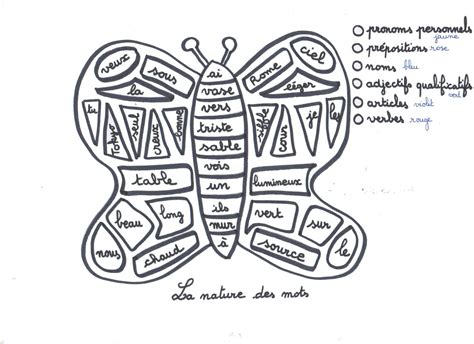 pronoms personnels
jaune
prépositions rose
noms bleu
adjectifs qualificatifs
vert
articles violet
verbes rouge
veux
sous
la
tu
Tokyo
seul
creux
bonne
table
beau
long
nous
chaud
ai
vase
vers
triste
sable
vois
un
ils
mur
à
Rome
ciel
léger
siffle
cous
je
les
lumineux
vert
sur
source
le
La nature des mots